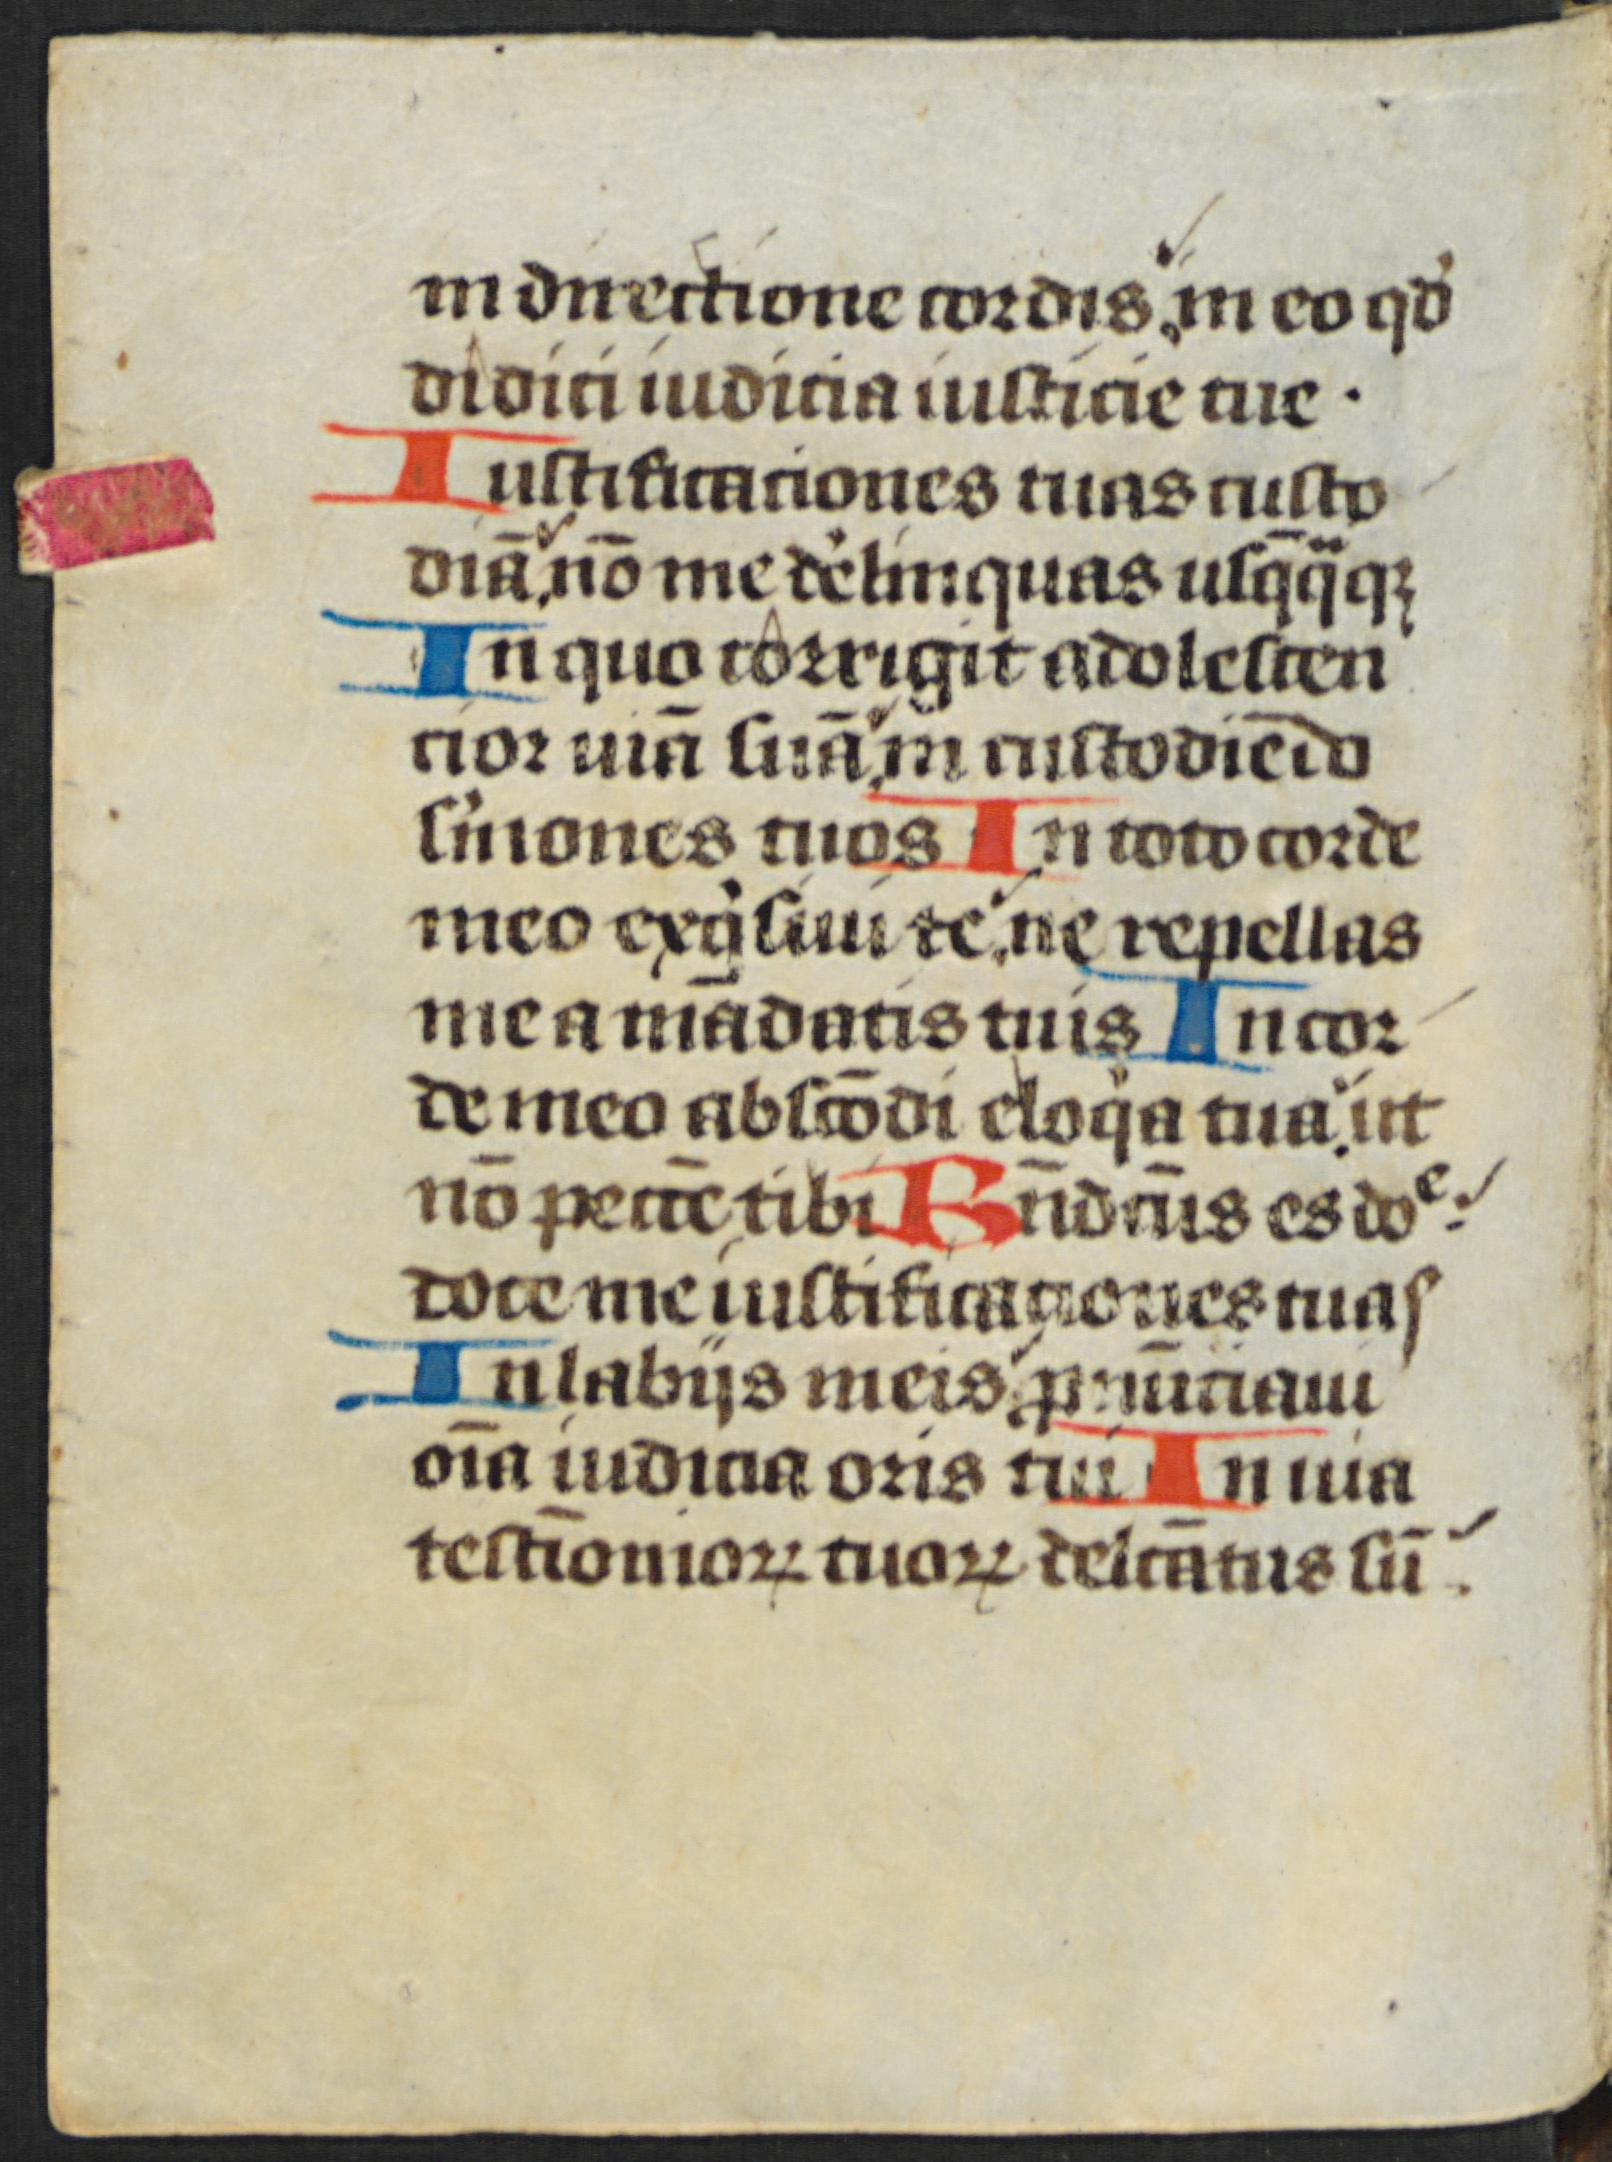 in directione cordis, in eo qd
didici iudicia iusticie tue ·
Iustificaciones tuas custo
diā, nō me delinquas usq̄q̈qꝫ
In quo corrigit adolescen
cior uiā suā, in custodiēdo
s̓mones tuos In toto corde
meo exq̇siui te, ne repellas
me a mādatis tuis In cor
de meo abscōdi eloq̇a tua, ut
nō peccē tibi Bn̄dcūs es doᵉ.
doce me iustificaciones tuas
In labijs meis, ꝓnūciaui
oīa iudicia oris tui In uia
testīonioꝝ tuoꝝ delcātus sū.